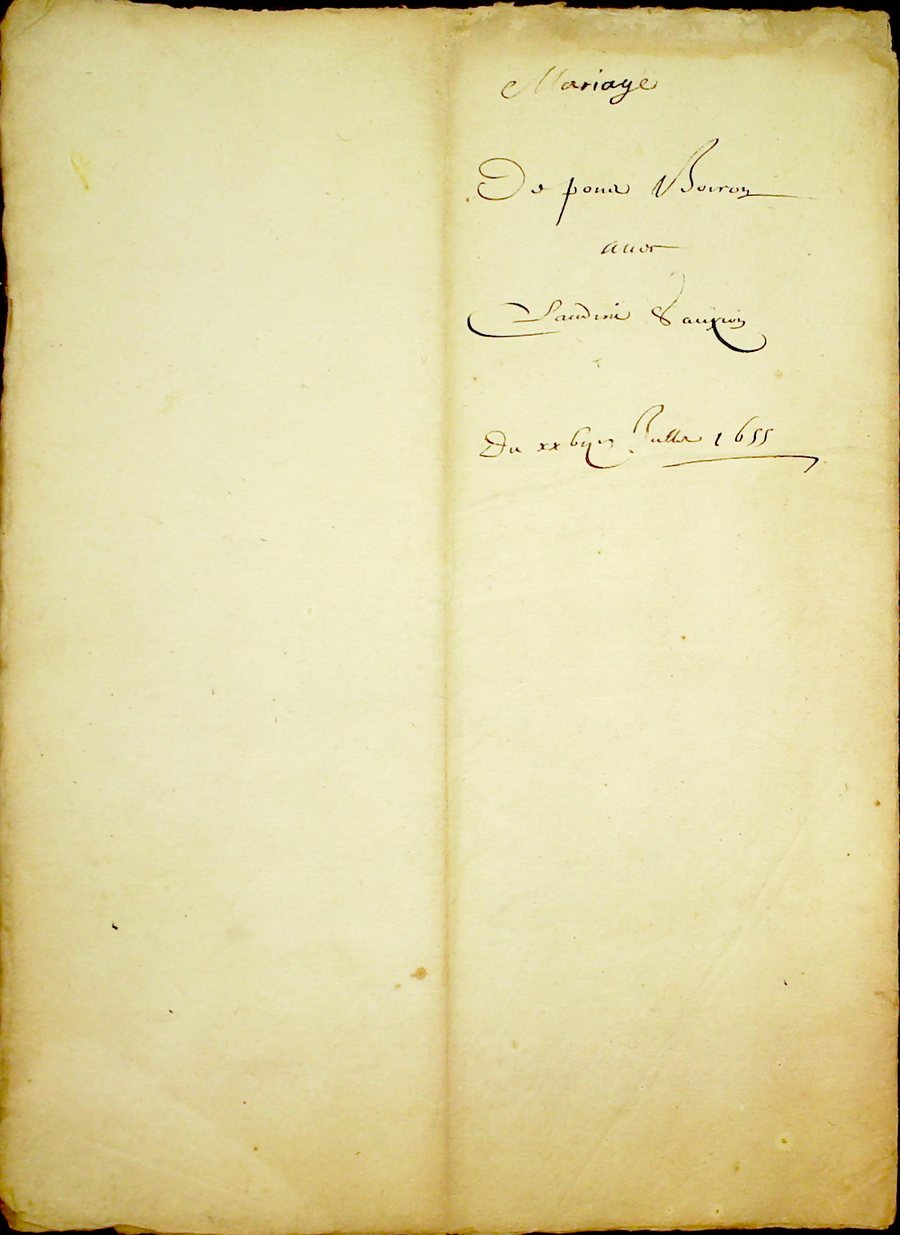 Mariage
De pons Boiron
auec
Claudine Sauxion
Du xxbij Juillet 1655